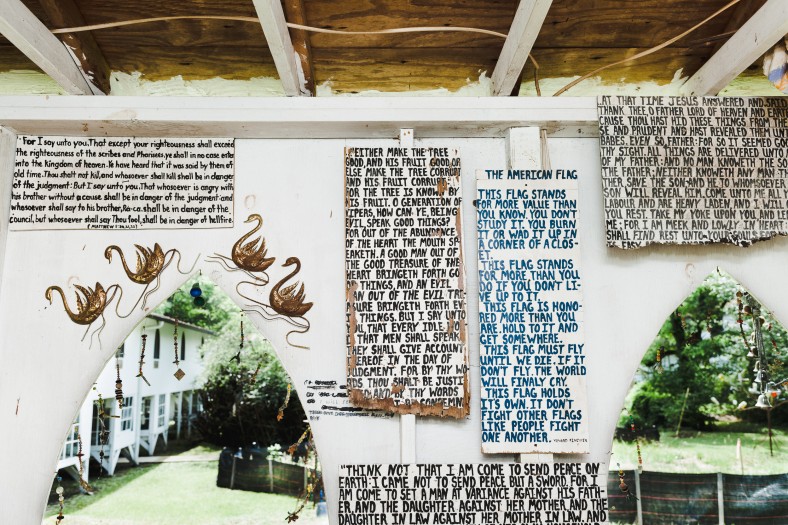 "For I say unto you. That except your righteousness shall exceed
the righteousness of the scribes and Pharisees, ye shall in no case enter
into the kingdom of heaven. Ye have heard that it was said by them of
old time. Thou shalt not kill, and whosoever shall kill shall be in danger
of the judgment: But I say unto you. That whosoever is angry with
his brother without a cause shall be in danger of the judgment: and
whosoever shall say to his brother, Ra-ca. shall be in danger of the
council, but whosoever shall say Thou fool, shall be in danger of hellfire.
"EITHER MAKE THE TREE
GOOD, AND HIS FRUIT GOOD OR
ELSE MAKE THE TREE CORRUPT
AND HIS FRUIT CORRUPT
FOR THE TREE IS KNOWN BY
HIS FRUIT. O GENERATION OF
VIPERS, HOW CAN YE, BEING
EVIL, SPEAK GOOD THINGS?
FOR OUT OF THE ABUNDANCE
OF THE HEART THE MOUTH SP-
EAKETH. A GOOD MAN OUT OF
THE GOOD TREASURE OF THE
HEART BRINGETH FORTH GO
THINGS, AND AN EVIL
AN OUT OF THE EVIL TRE-
ASURE BRINGETH FORTH EV
THINGS. BUT I SAY UNTO
U, THAT EVERY IDLE WO
THAT MEN SHALL SPEAK,
THEY SHALL GIVE ACCOUNT
HEREOF IN THE DAY OF
JUDGMENT. FOR BY THY WO
RDS THOU SHALT BE JUSTI
AND BY THY WORDS
THE AMERICAN FLAG
THIS FLAG STANDS
FOR MORE VALUE THAN
YOU KNOW. YOU DON'T
STUDY IT, YOU BURN
IT OR WAD IT UP IN
A CORNER OF A CLOS-
ET.
THIS FLAG STANDS
FOR MORE THAN YOU
DO IF YOU DON'T LI-
VE UP TO IT.
THIS FLAG IS HONO-
RED MORE THAN YOU
ARE. HOLD TO IT AND
GET SOMEWHERE.
THIS FLAG MUST FLY
UNTIL WE DIE. IF IT
DON'T FLY. THE WORLD
WILL FINALY CRY.
THIS FLAG HOLDS
IT'S OWN. IT DON'T
FIGHT OTHER FLAGS
LIKE PEOPLE FIGHT
ONE ANOTHER.
HOWARD FINSTER
AT THAT TIME JESUS ANSWERED AND SAID
THANK THEE, O FATHER LORD OF HEAVEN AND EARTH
CAUSE THOU HAST HID THESE THINGS FROM THE
SE AND PRUDENT AND HAST REVEALED THEM UNTO
BABES. EVEN SO, FATHER: FOR SO IT SEEMED GOO
THY SIGHT. ALL THINGS ARE DELIVERED UNTO
OF MY FATHER: AND NO MAN KNOWETH THE SO
THE FATHER; NEITHER KNOWETH ANY MAN TH
THER, SAVE THE SON, AND HE TO WHOMSOEVER
SON WILL REVEAL HIM. COME UNTO ME ALL
LABOUR AND ARE HEAVY LADEN, AND I WILL
YOU REST. TAKE MY YOKE UPON YOU AND LE
ME; FOR I AM MEEK AND LOWLY IN HEART:
SHALL FIND REST UNTO YOUR SOULS. FOR
"THINK NOT THAT I AM COME TO SEND PEACE ON
EARTH: I CAME NOT TO SEND PEACE BUT A SWORD. FOR I
AM COME TO SET A MAN AT VARIANCE AGAINST HIS FATH-
ER, AND THE DAUGHTER AGAINST HER MOTHER, AND THE
DAUGHTER IN LAW AGAINST HER MOTHER IN LAW, AND